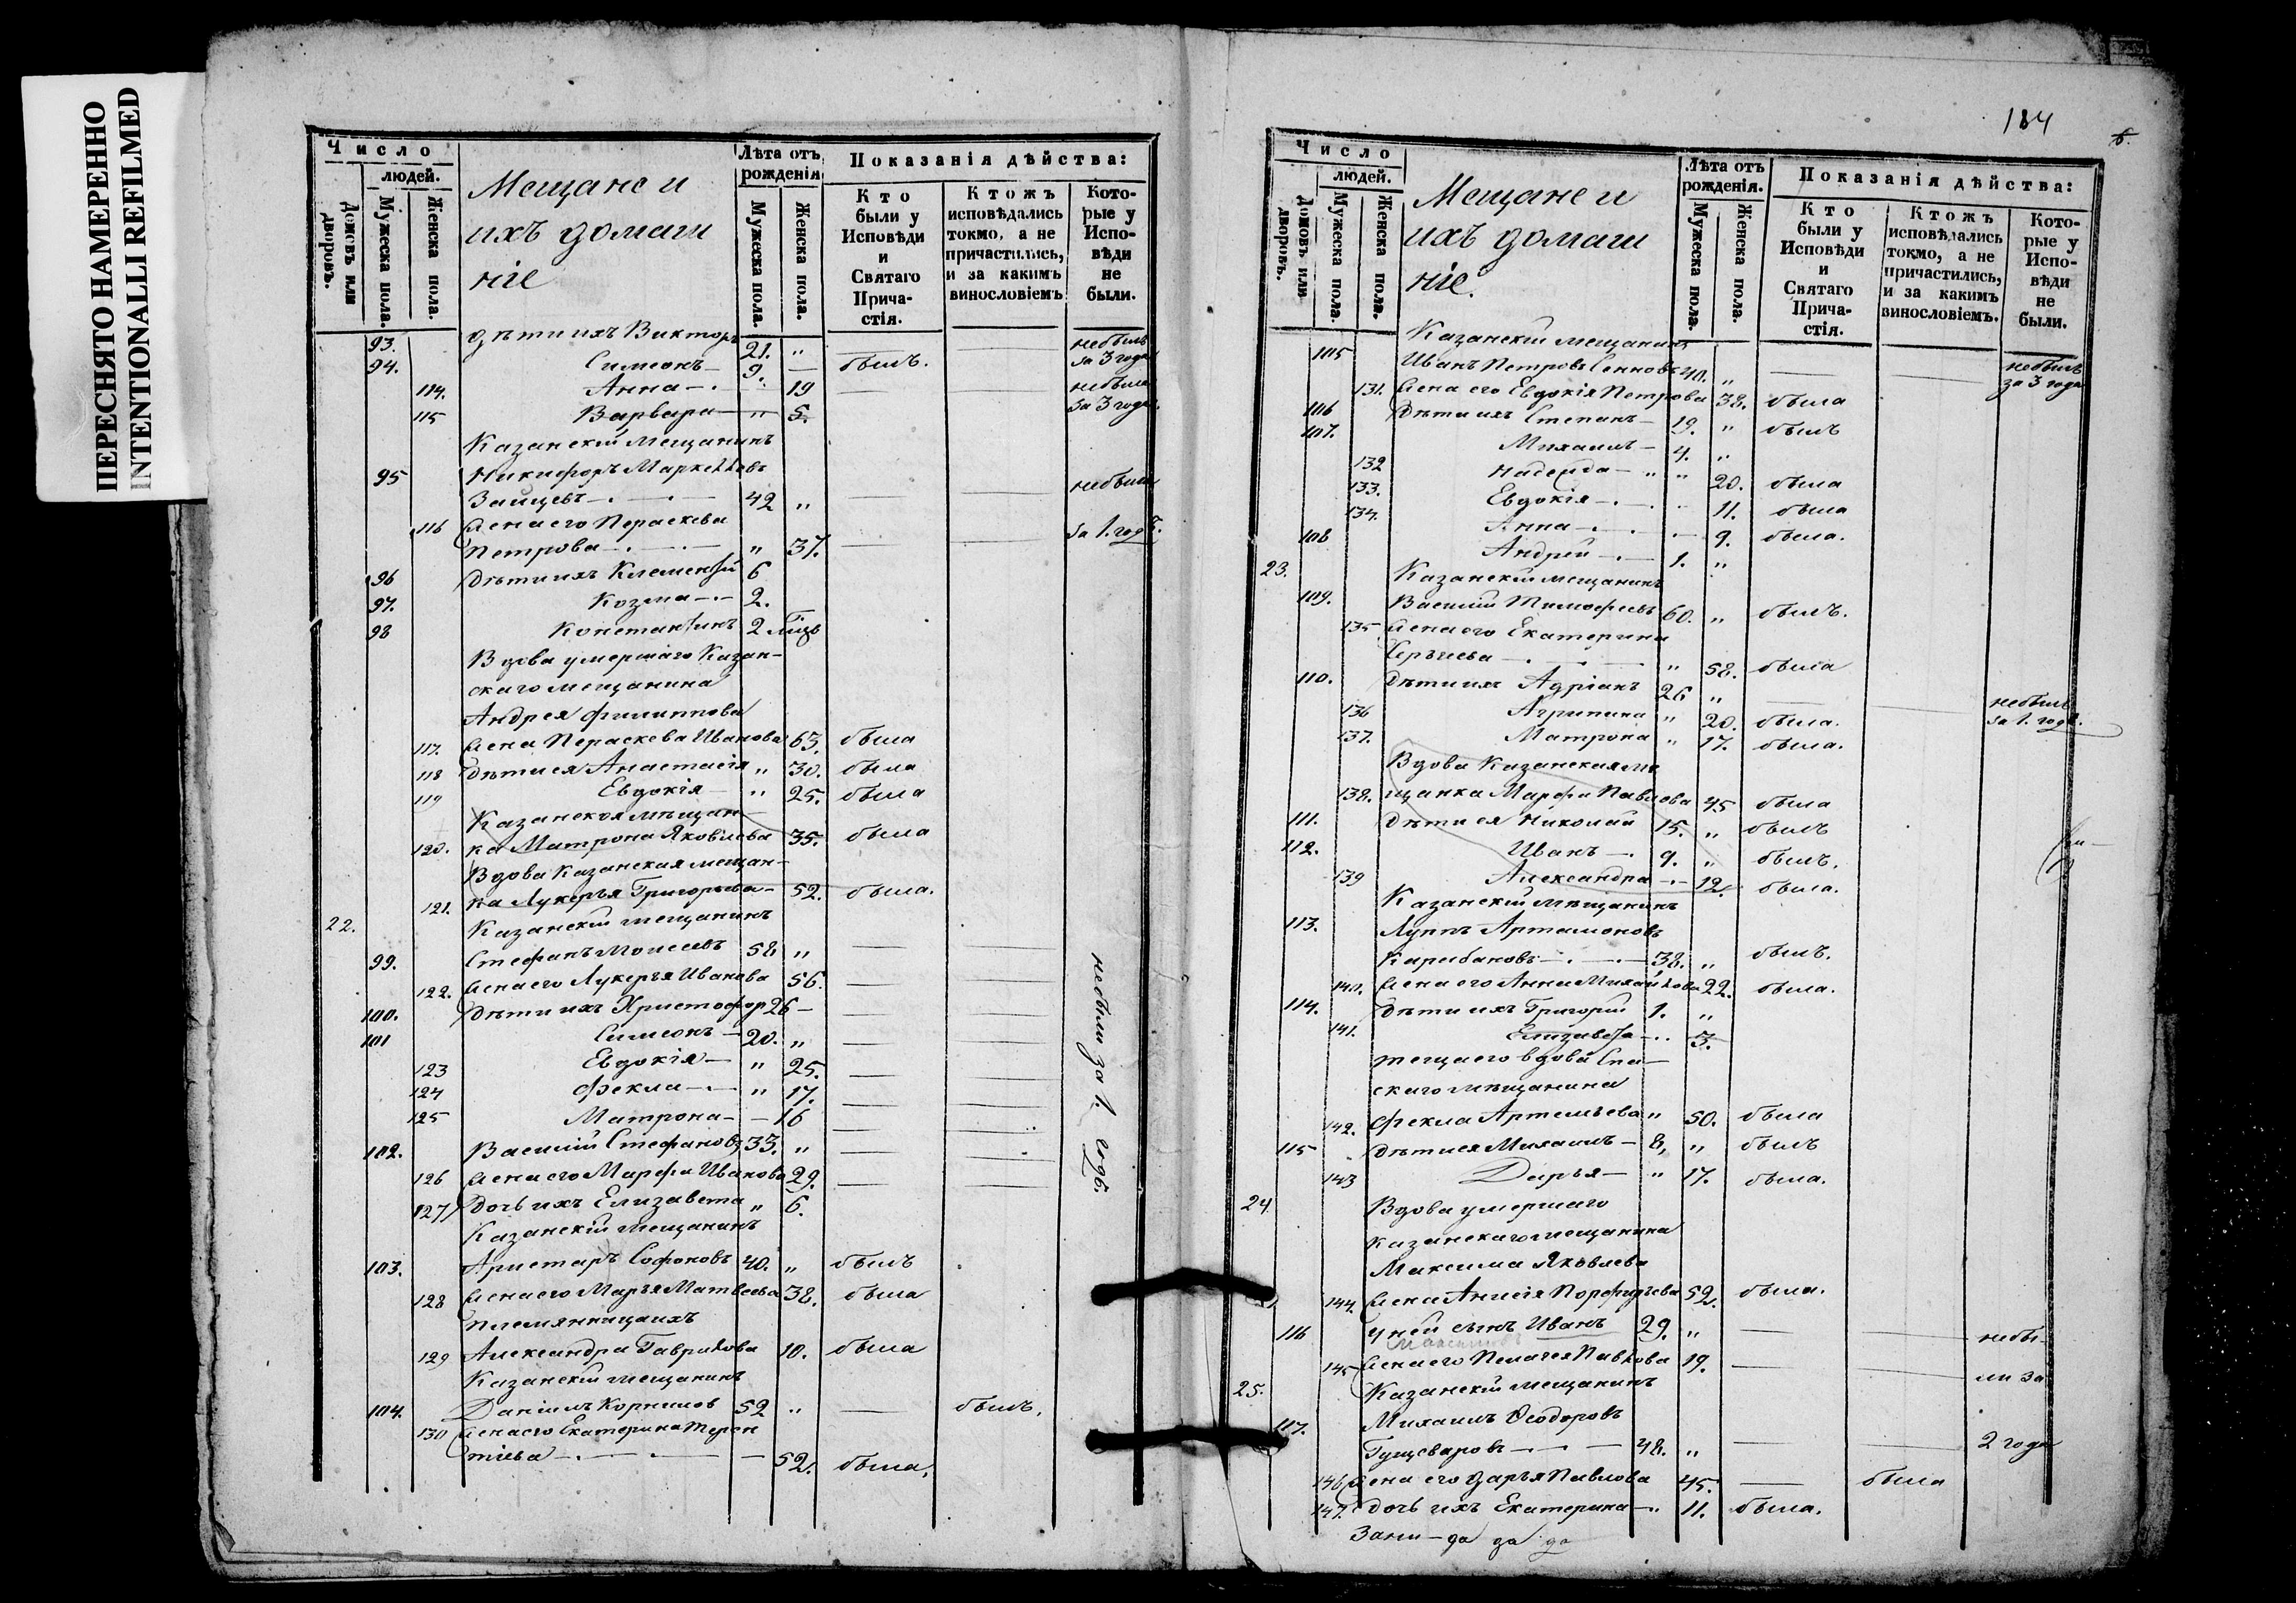 ПЕРЕСНЯТО НАМЕРЕННО
INTENTIONALLI REFILMED
Число
людей.
Домовъ или дворовъ.
Мужеска пола.
Женска пола.
Мещане и
ихъ домаш
ніе
Лѣта отъ рожденія
Мужеска пола.
Женска пола.
Показанія дѣйства:
Кто были у Исповѣди и Святаго Прича-стія.
Ктожъ исповѣдались токмо, а не причастились, и за какимъ винословіемъ
Кото-рые у Испо-вѣди не были.
93. дѣти ихъ Викторъ 21. " — — небылъ
94. Симеонъ — 9. — былъ. — за 3 года
114. Анна — . — 19 — — небыла
115 Варвара — " 5. за 3 года.
Казанскій мещанинъ
95 Никифоръ Маркелловъ
Зайцевъ — . — 42 " — — небыли
116 Жена его Параскева
Петрова — . — " 37. — — за 1. годъ.
96 Дѣти ихъ Клементій 6
97. Козма — . — 2.
98 Константинъ 2
Вдова умершаго Казан-
скаго мещанина
Андрея Филиппова
117. Жена Параскева Иванова 63. была
118 Дѣти ея Анастасія " 30. была
119 Евдокія — " 25. была
Казанская мѣщан-
120. ка Матрона Яковлева 35. была
Вдова Казанская мещан-
121. ка Лукерья Григорьева — 52. была.
22. Казанскій мещанинъ
99. Стефанъ Моисеевъ 58 " — —
122. Жена его Лукерья Иванова 56. — —
100. Дѣти ихъ Христофор 26 — — —
101 Симеонъ — 20. " — —
123 Евдокія — " 25. — —
124 Фекла — . — " 17. — —
125 Матрона — — 16 — —
102. Василій Стефановъ 33. " — —
126 Жена его Марфа Иванова 29. — —
127 Дочь ихъ Елизавета " 6.
небыли за 1. годъ.
Казанскій мещанинъ
103. Аристарх Софоновъ 40. " былъ
128 Жена его Марья Матвеева 38. была
Племянница ихъ
129 Александра Гаврилова 10. была
Казанскій мещанинъ
104. Даніилъ Корнилов 52 " — былъ.
130 Жена его Екатерина Терен
тіева — . — 52. была.
184
Число
людей.
Домовъ или дворовъ.
Мужеска пола.
Женска пола.
Мещане и
ихъ домаш
ніе.
Лѣта отъ рожденія.
Мужеска пола.
Женска пола.
Показанія дѣйства:
Кто были у Исповѣди и Святаго Прича-стія.
Ктожъ исповѣдались токмо, а не причастились, и за какимъ винословіемъ.
Кото-рые у Испо-вѣди не были.
Казанскій мещанинъ
105 Иванъ Петровъ 40. " — — небылъ за 3 года
131. Жена его Евдокія Петрова 38. была
106 Дѣти ихъ Степанъ — 19. " былъ
107. Михаилъ — 4. "
132 Надежда — " " 20. была
133. Евдокія — . — 11. была
134. Анна — . — 9. была.
108 Андрей — . — 1. "
23. Казанскій мещанинъ
109. Василій Тимофеевъ 60. " былъ.
135 Жена его Екатерина
Сергѣева — . — " 58. была
110. Дѣти ихъ Адріанъ 26 " — — небылъ
136 Агрипина " 20. была. за 1. годъ.
137. Матрона " 17. была.
Вдова Казанская ме
138. щанка Марфа Павлова 45 была
111. Дѣти ея Николай 15. " былъ
112. Иванъ — . 9. " былъ.
139 Александра — . — 12. была.
Казанскій мѣщанинъ
113. Луппъ Артамоновъ
Карабановъ — . — 38. " былъ.
140. Жена его Анна Михайлова 22. была.
114. Дѣти ихъ Григорій 1. "
141. Елизавета — . . 3.
теща его вдова Спа—
скаго мѣщанина
142. Фекла Артемьева " 50. была
115 Дѣти ея Михаилъ — 8, " былъ
143 Дарья — " 17. была.
24. Вдова умершаго
Казанскаго мещанина
Максима Яковлева
144. Жена Анисія Порфирьева 52. была.
116 у ней сынъ Иванъ 29. " — — небы-
Максимовъ
145 Жена его Пелагея Павлова 19. — — ли за
25. Казанскій мещанинъ
117. Михаилъ Ѳеодоровъ
48. " — — 2 года
146 Жена его Дарья Павлова 45. — была
147. Дочь ихъ Екатерина — . 11. была.